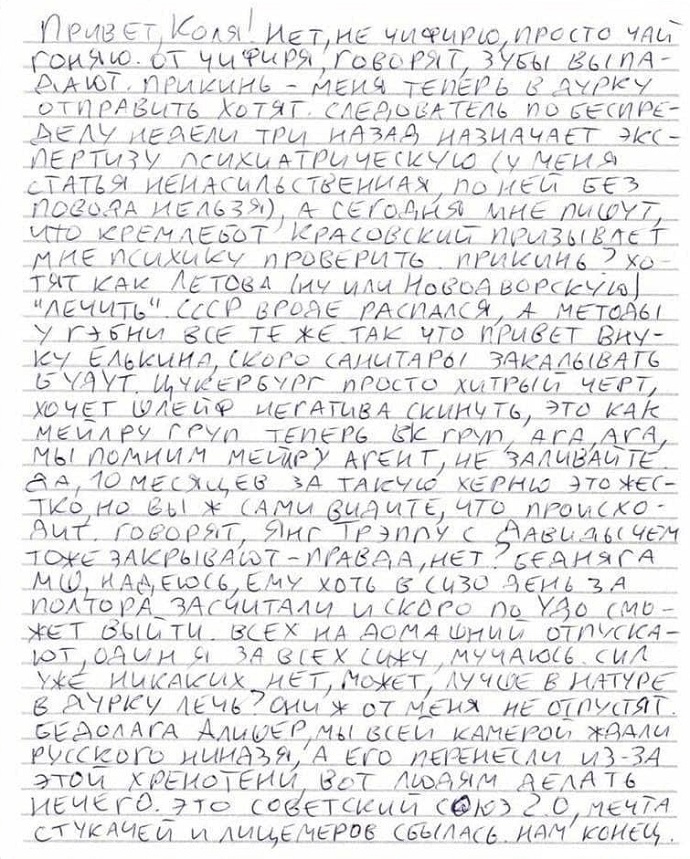 Привет, Коля! Нет, не чифирю, просто чай
гоняю. От чифиря, говорят, зубы выпа-
дают. Прикинь - меня теперь в дурку
отправить хотят. Следователь по беспре-
делу недели три назад назначает экс-
пертизу психиатрическую (у меня
статья ненасильственная, по ней без
повода нельзя), а сегодня мне пишут,
что кремлебот Красовский призывает
мне психику проверить. Прикинь? Хо-
тят как Летова (ну или Новодворскую)
"лечить". СССР вроде распался, а методы
у гэбни все те же. Так что привет вну-
ку Елькина, скоро санитары закалывать
будут. Цукербург просто хитрый черт,
хочет шлейф негатива скинуть, это как
мейлру груп теперь вк груп, ага, ага,
мы помним мейлру агент, не заливайте.
Да, 10 месяцев за такую херню это жес-
тко, но вы ж сами видите, что происхо-
дит. Говорят, Янг Трэппу с Давидычем
тоже закрывают - правда, нет? Бедняга
МШ, надеюсь, ему хоть в СИЗО день за
полтора засчитали и скоро по УДО смо-
жет выйти. Всех на домашний отпуска-
ют, один я за всех сижу, мучаюсь. Сил
уже никаких нет, может, лучше в натуре
в дурку лечь? Они ж от меня не отпустят.
Бедолага Алишер, мы всей камерой ждали
русского ниндзя, а его перенесли из-за
этой хренотени, вот людям делать
нечего. Это Советский Союз 2.0, мечта
стукачей и лицемеров сбылась. Нам конец.